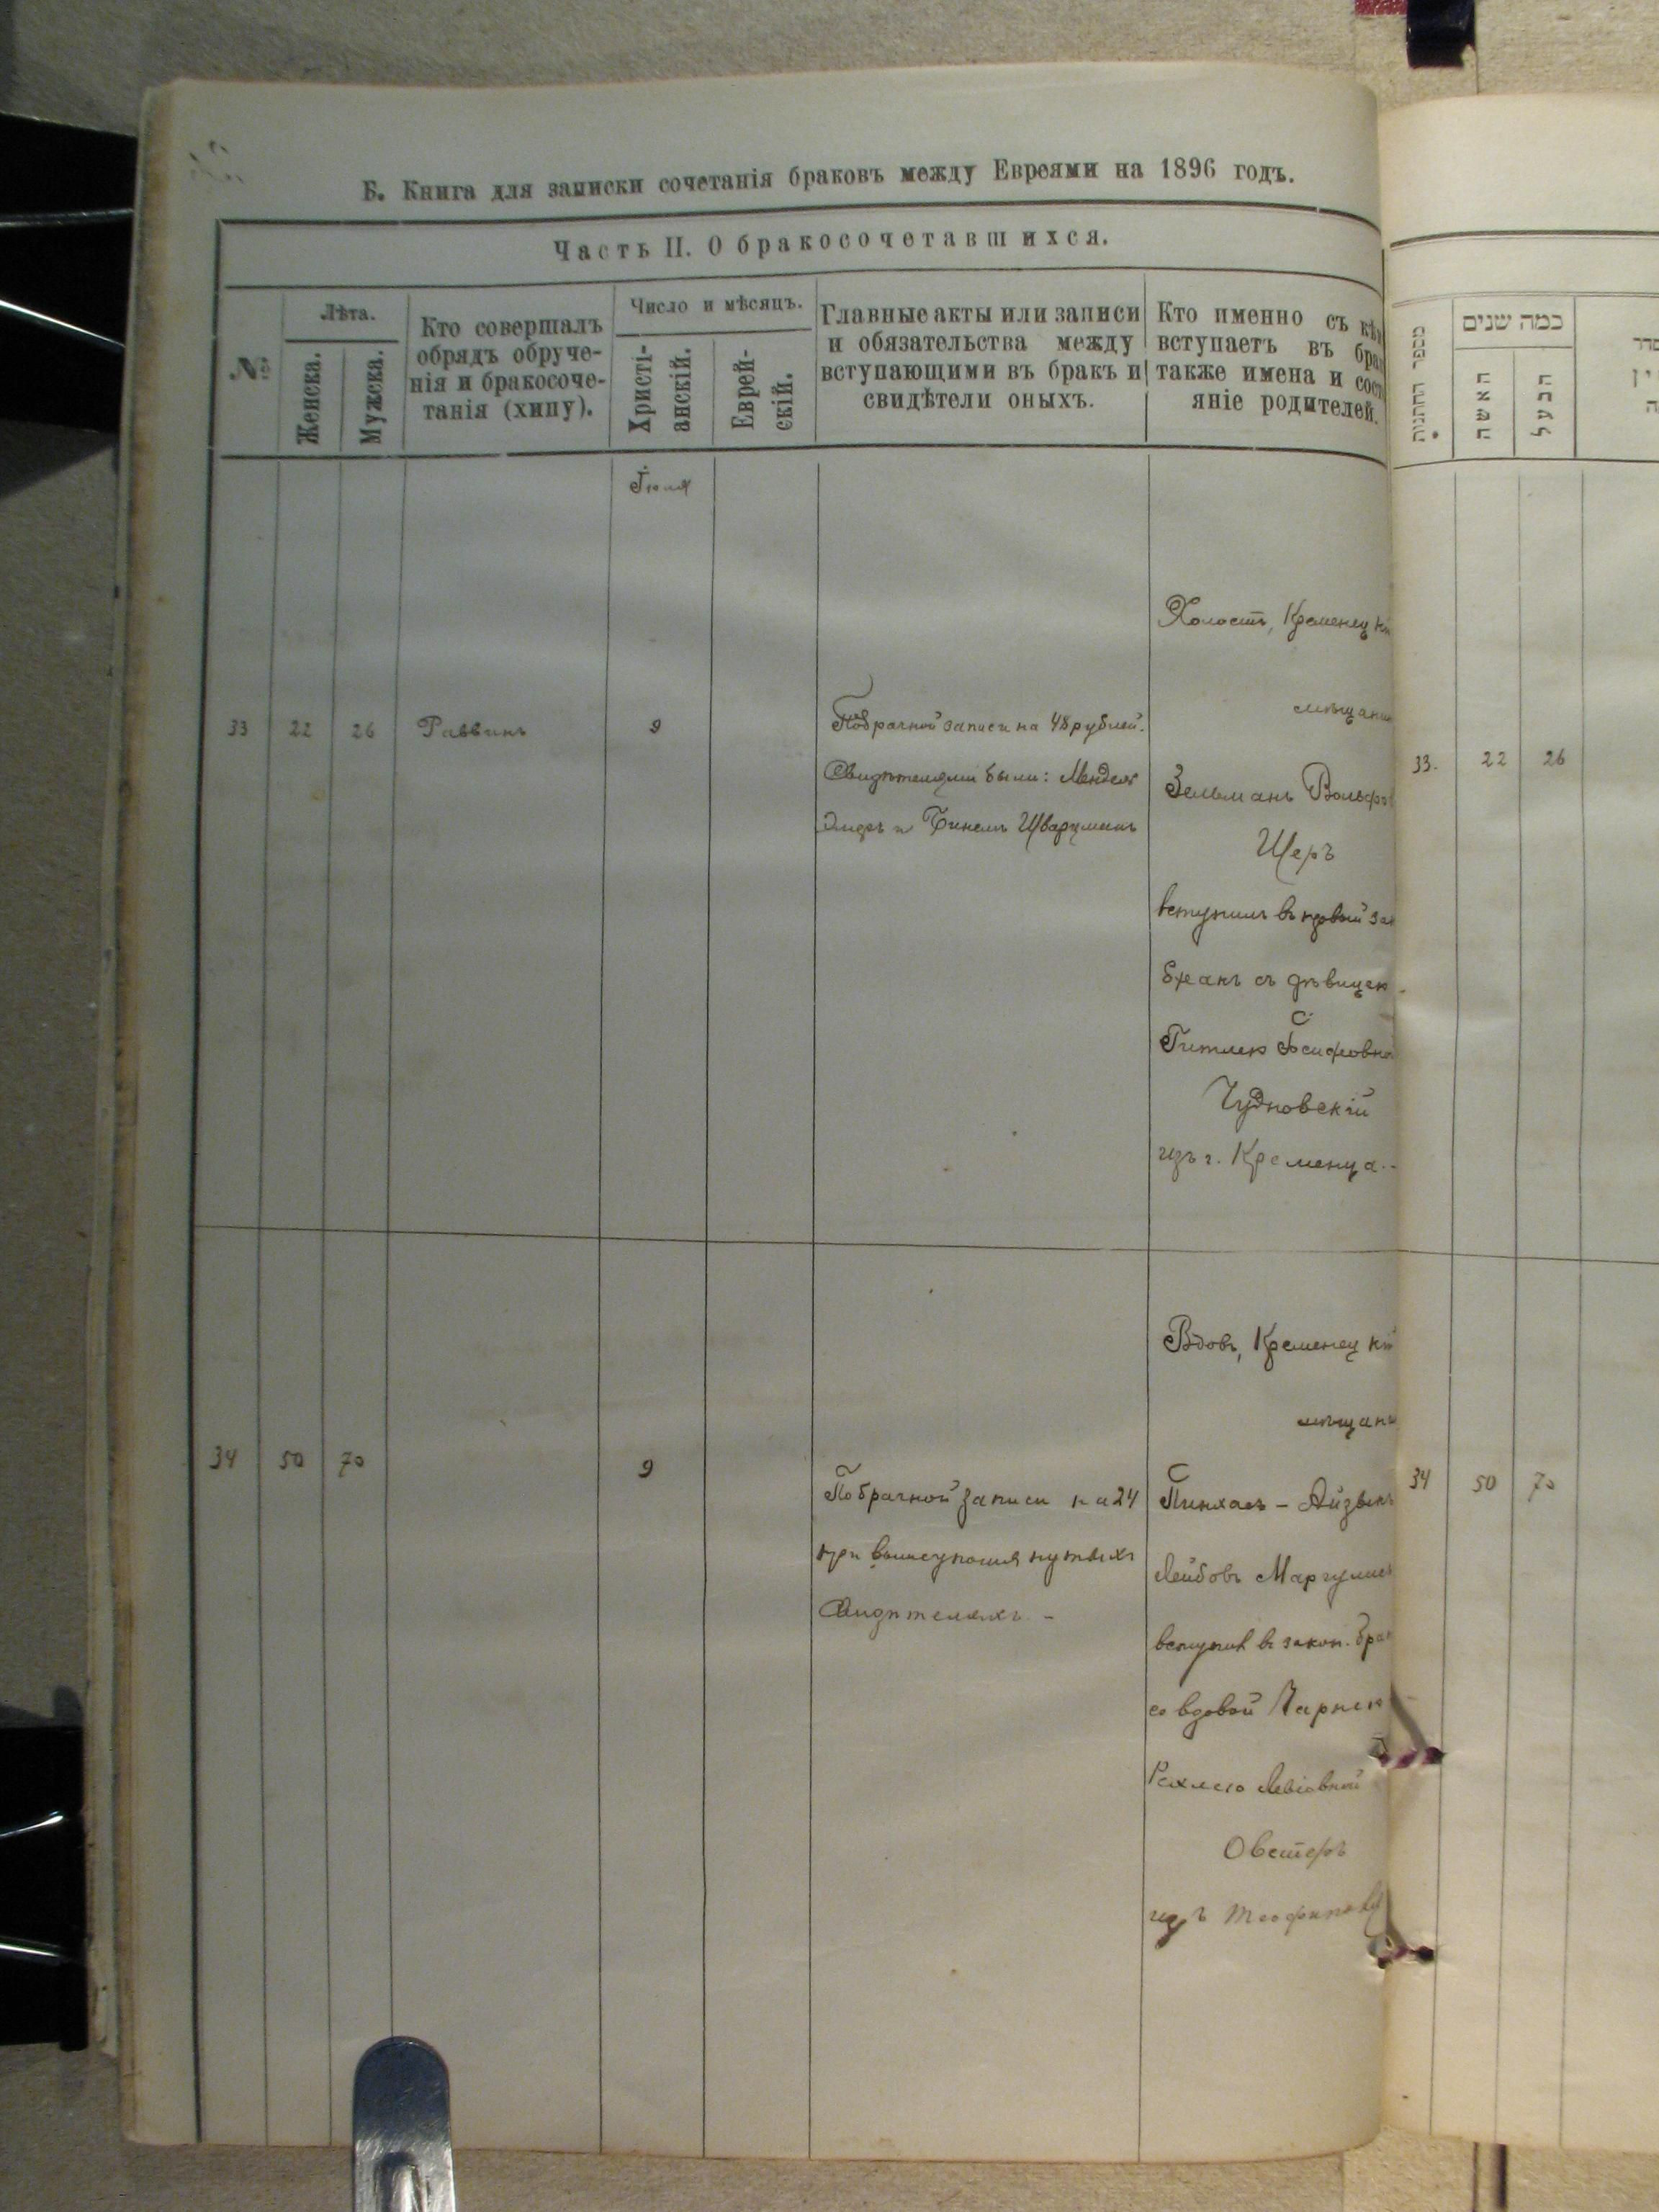 Б. Книга для записки сочетанія браковъ между Евреями на 1896 годъ.
Часть II. О бракосочетавшихся.
№
Лѣта.
Женска.
Мужска.
Кто совершалъ
обрядъ обруче-
нія и бракосоче-
танія (хипу).
Число и мѣсяцъ.
Христі-
анскій.
Еврей-
скій.
Главные акты или записи
и обязательства между
вступающими въ бракъ и
свидѣтели оныхъ.
Кто именно съ кѣм
вступаетъ въ брак
также имена и сост
яніе родителей.
33
22
26
Раввинъ
9
По брачной записи на 48 рублей.
Свидѣтелями были: Мендель
и Шварцманъ
Холостъ, Кременецкі
мѣщанин
Зельманъ Вольфов
Шеръ
вступилъ въ первый зак
бракъ съ дѣвицею
Гитлею Іосифовной
Чудновскій
изъ г. Кременца.-
34
50
70
9
По брачной записи на 24
при вышеупомянутыхъ
Свидѣтеляхъ -
Вдовъ, Кременецкій
мѣщани
Пинхасъ - Айзыкъ
Лейбовъ Маргулис
вступилъ въ закон. бра
со вдовой Чарнею
Рахлею
Овштеръ
изъ
מספר החתונות
כמה שנים
האשה
הבעל
33.
22
26
34
50
70